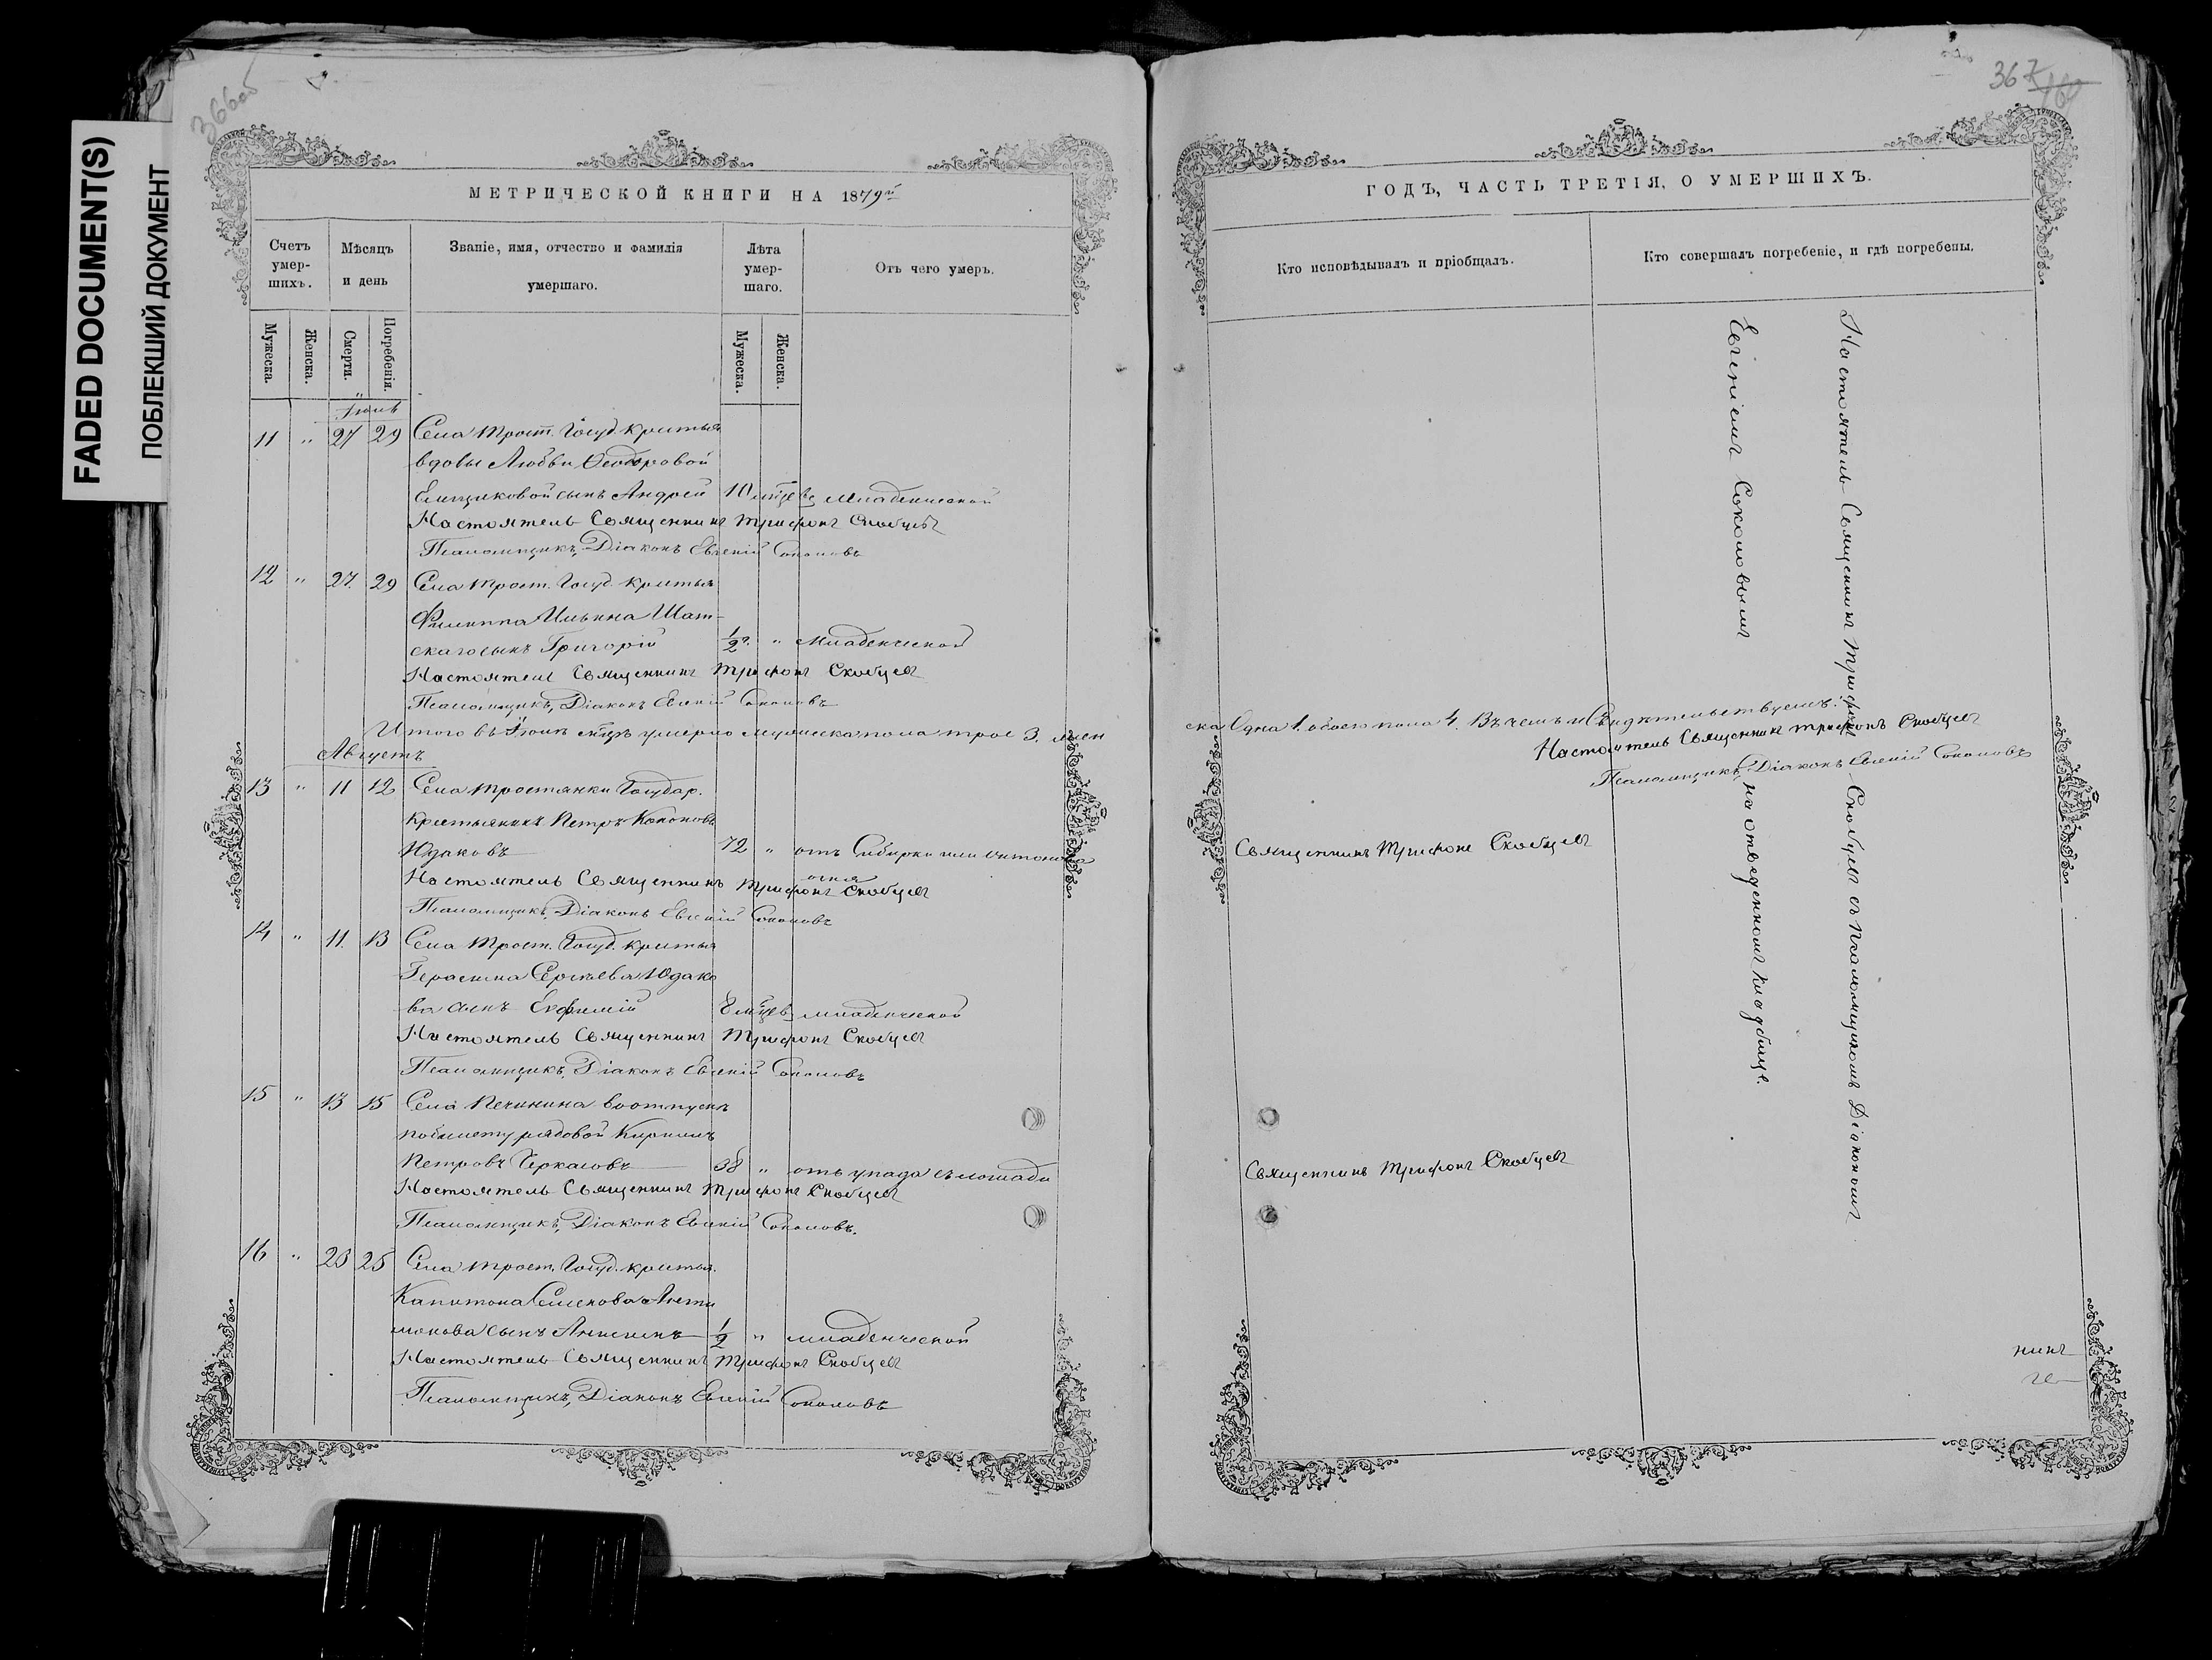 FADED DOCUMENT(S)
ПОБЛЕКШИЙ ДОКУМЕНТ
366об
МЕТРИЧЕСКОЙ КНИГИ НА 1879й
Счетъ умер-шихъ.
Мѣсяцъ и день
Званіе, имя, отчество и фамилія умершаго.
Лѣта умер-шаго.
Отъ чего умеръ.
Мужеска.
Женска.
Смерти.
Погребенія.
Мужеска.
Женска.
Іюнь
11 " 27 29 Села Трост. Госуд. крестья
вдовы Любви Ѳеодоровой
сынъ Андрей 10 мцевъ Младенческой
Настоятель Священникъ Трифонъ Скобцевъ
Псаломщикъ, Діаконъ Евгеній Соколовъ
12 " 27. 29 Села Трост. Госуд. крестья
Филиппа Ильина Шат-
скаго сынъ Григорій 1/2 г. " Младенческой
Настоятель Священникъ Трифонъ Скобцевъ
Псаломщикъ, Діаконъ Евгеній Соколовъ
Итого въ Іюнѣ мцѣ умерло мужеска пола трое 3. жен
Августъ
13 " 11 12 Села Тростянки Государ.
крестьянинъ Петръ Кононовъ
Юдаковъ 72 " отъ Сибирки или Антонова
огня
Настоятель Священникъ Трифонъ Скобцевъ
Псаломщикъ, Діаконъ Евгеній Соколовъ
14 " 11. 13 Села Трост. Госуд. крестья
Герасима Сергѣева Юдако
ва сынъ Евфимій 8 мцевъ младенческой
Настоятель Священникъ Трифонъ Скобцевъ
Псаломщикъ, Діаконъ Евгеній Соколовъ
15 " 13 15 Села Печинина въ отпускѣ
по билету рядовой Кириллъ
Петровъ Черкасовъ 38 " отъ упада съ лошади
Настоятель Священникъ Трифонъ Скобцевъ
Псаломщикъ, Діаконъ Евгеній Соколовъ.
16 " 23 25 Села Трост. Госуд. крестья.
Капитона Семенова
сынъ Анисимъ 1/2 " младенческой
Настоятель Священникъ Трифонъ Скобцевъ
Псаломщикъ, Діаконъ Евгеній Соколовъ
367
ГОДЪ, ЧАСТЬ ТРЕТІЯ, О УМЕРШИХЪ.
Кто исповѣдывалъ и пріобщалъ.
Кто совершалъ погребеніе, и гдѣ погребены.
Настоятель Священникъ Трифонъ Скобцевъ съ Псаломщикомъ Діакономъ
Евгеніемъ Соколовымъ на отведенномъ кладбище.
ска Одна 1. обоего пола 4. Въ чемъ и Свидѣтельствуемъ.
Настоятель Священникъ Трифонъ Скобцевъ
Псаломщикъ, Діаконъ Евгеній Соколовъ
Священникъ Трифонъ Скобцевъ
Священникъ Трифонъ Скобцевъ
никъ